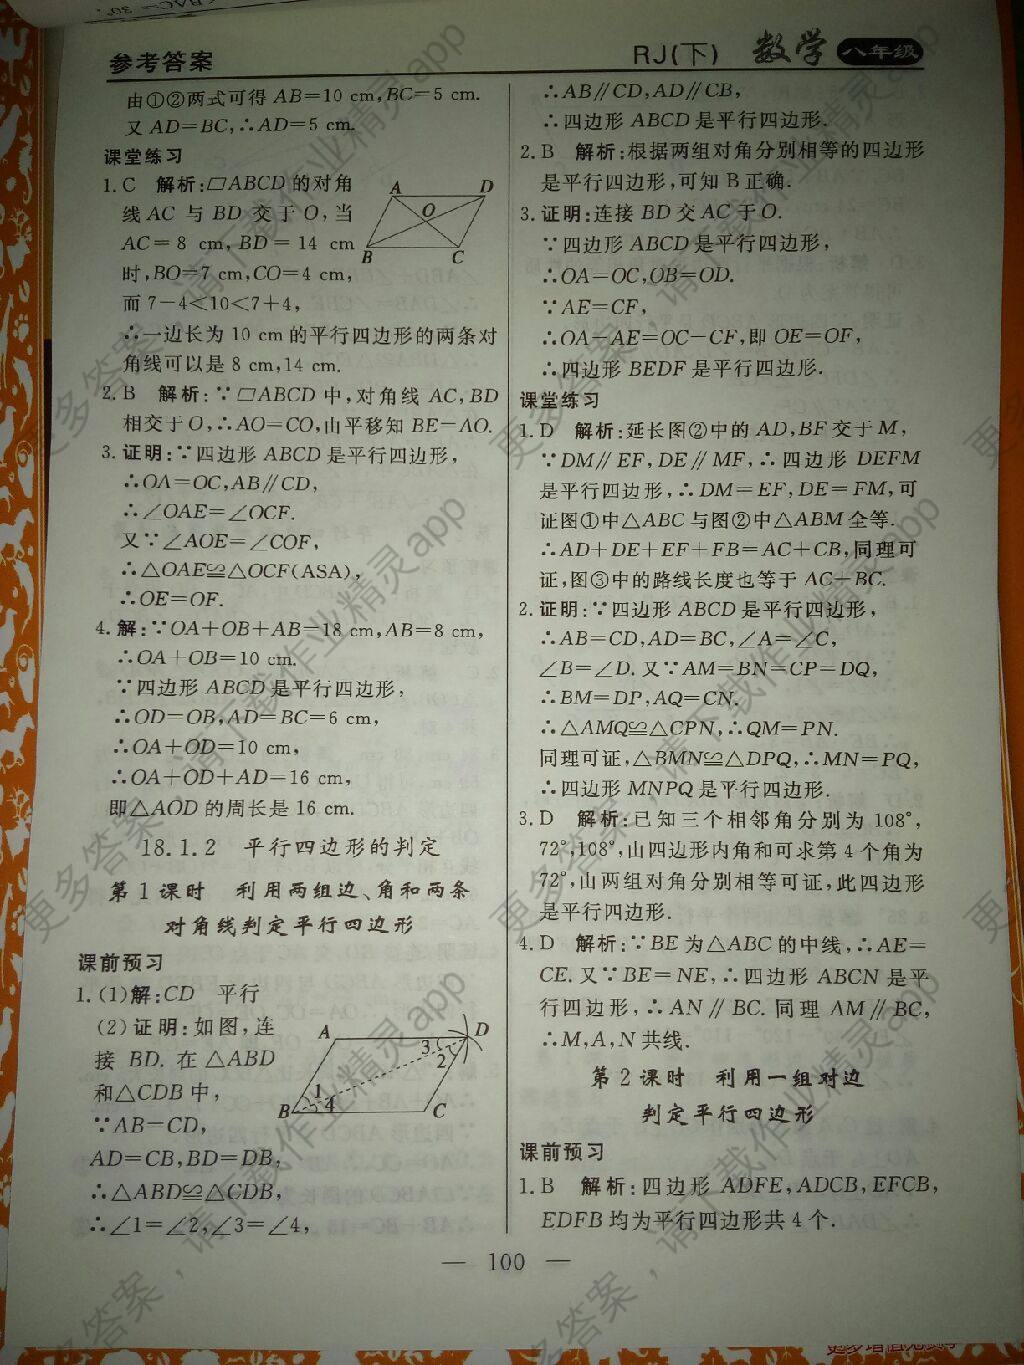 ∠BAC=30°
参考答案
RJ(下) 数学 八年级
由①②两式可得 AB=10 cm,BC=5 cm.
又 AD=BC,∴AD=5 cm.
课堂练习
1. C 解析:▱ABCD 的对角
线 AC 与 BD 交于 O,当
AC=8 cm,BD=14 cm
时,BO=7 cm,CO=4 cm,
而 7-4<10<7+4,
∴一边长为 10 cm 的平行四边形的两条对
角线可以是 8 cm,14 cm.
A D
O
B C
2. B 解析:∵▱ABCD 中,对角线 AC,BD
相交于 O,∴AO=CO,由平移知 BE=AO.
3. 证明:∵四边形 ABCD 是平行四边形,
∴OA=OC,AB∥CD,
∴∠OAE=∠OCF.
又∵∠AOE=∠COF,
∴△OAE≌△OCF(ASA),
∴OE=OF.
4. 解:∵OA+OB+AB=18 cm,AB=8 cm,
∴OA+OB=10 cm.
∵四边形 ABCD 是平行四边形,
∴OD=OB,AD=BC=6 cm,
∴OA+OD=10 cm,
∴OA+OD+AD=16 cm,
即△AOD 的周长是 16 cm.
18.1.2 平行四边形的判定
第 1 课时 利用两组边、角和两条
对角线判定平行四边形
课前预习
1. (1)解:CD 平行
(2)证明:如图,连
接 BD. 在△ABD
和△CDB 中,
∵AB=CD,
AD=CB,BD=DB,
∴△ABD≌△CDB,
∴∠1=∠2,∠3=∠4,
A D
3
2
1
4
B C
∴AB∥CD,AD∥CB,
∴四边形 ABCD 是平行四边形.
2. B 解析:根据两组对角分别相等的四边形
是平行四边形,可知 B 正确.
3. 证明:连接 BD 交 AC 于 O.
∵四边形 ABCD 是平行四边形,
∴OA=OC,OB=OD.
∵AE=CF,
∴OA-AE=OC-CF,即 OE=OF,
∴四边形 BEDF 是平行四边形.
课堂练习
1. D 解析:延长图②中的 AD,BF 交于 M,
∵DM∥EF,DE∥MF,∴四边形 DEFM
是平行四边形,∴DM=EF,DE=FM,可
证图①中△ABC 与图②中△ABM 全等.
∴AD+DE+EF+FB=AC+CB,同理可
证,图③中的路线长度也等于 AC+BC.
2. 证明:∵四边形 ABCD 是平行四边形,
∴AB=CD,AD=BC,∠A=∠C,
∠B=∠D. 又∵AM=BN=CP=DQ,
∴BM=DP,AQ=CN.
∴△AMQ≌△CPN,∴QM=PN.
同理可证,△BMN≌△DPQ,∴MN=PQ,
∴四边形 MNPQ 是平行四边形.
3. D 解析:已知三个相邻角分别为 108°,
72°,108°,由四边形内角和可求第 4 个角为
72°,由两组对角分别相等可证,此四边形
是平行四边形.
4. D 解析:∵BE 为△ABC 的中线,∴AE=
CE. 又∵BE=NE,∴四边形 ABCN 是平
行四边形,∴AN∥BC. 同理 AM∥BC,
∴M,A,N 共线.
第 2 课时 利用一组对边
判定平行四边形
课前预习
1. B 解析:四边形 ADFE,ADCB,EFCB,
EDFB 均为平行四边形共 4 个.
— 100 —
更多答案,请下载作业精灵app